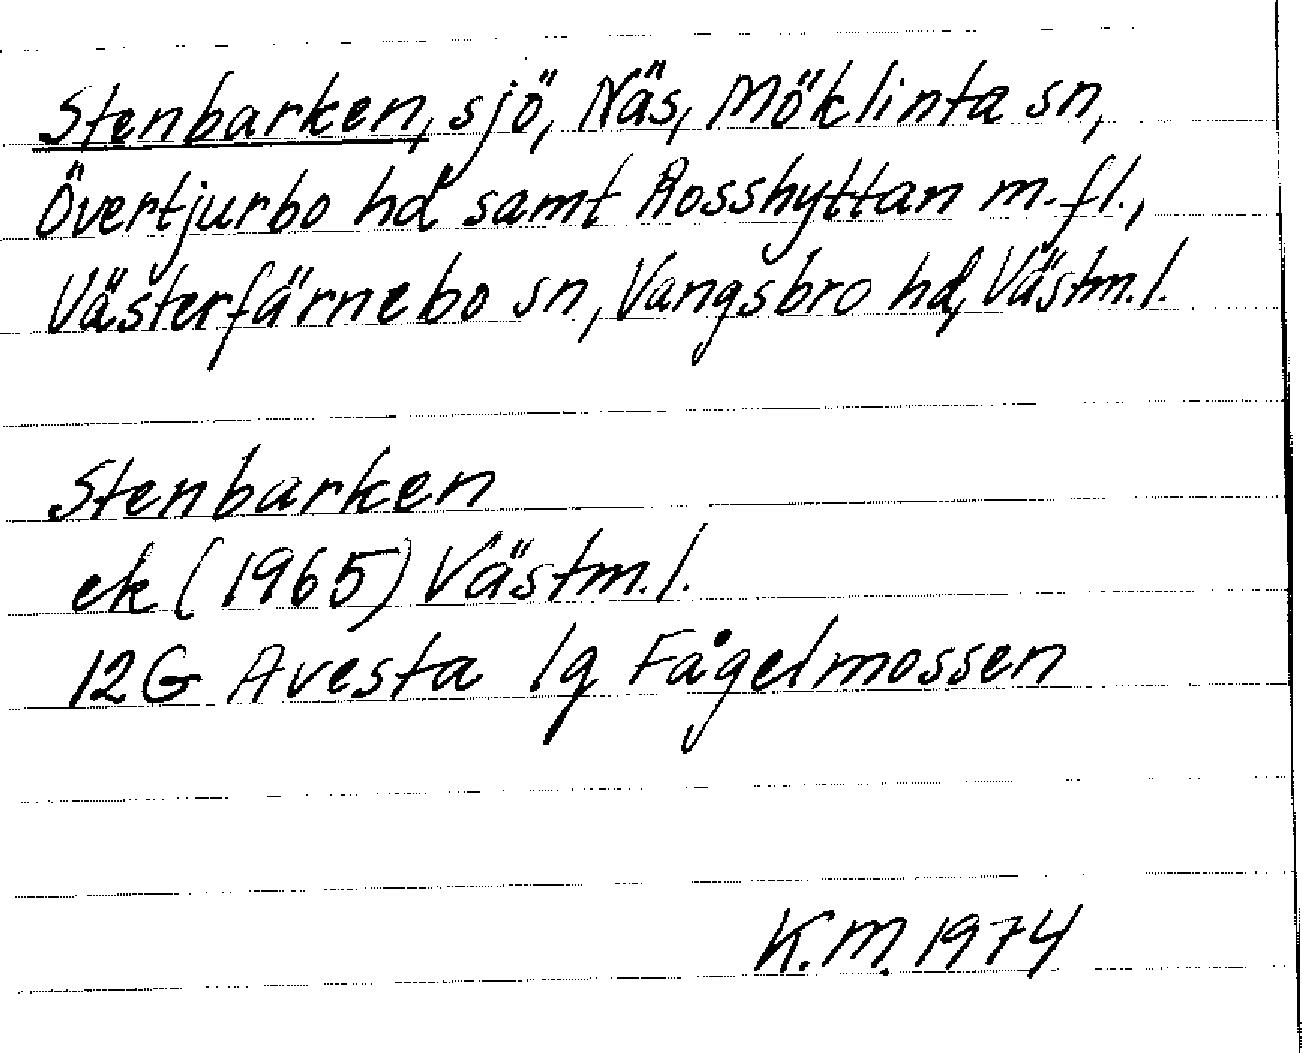 Stenbarken, sjö, Näs, Möklinta sn,
Övertjurbo hd samt Rosshyttan m.fl.,
Västerfärnebo sn, Vangsbro hd, Västm.l.
Stenbarken
ek (1965) Västm.l.
12G Avesta 1g Fågelmossen
K.M. 1974